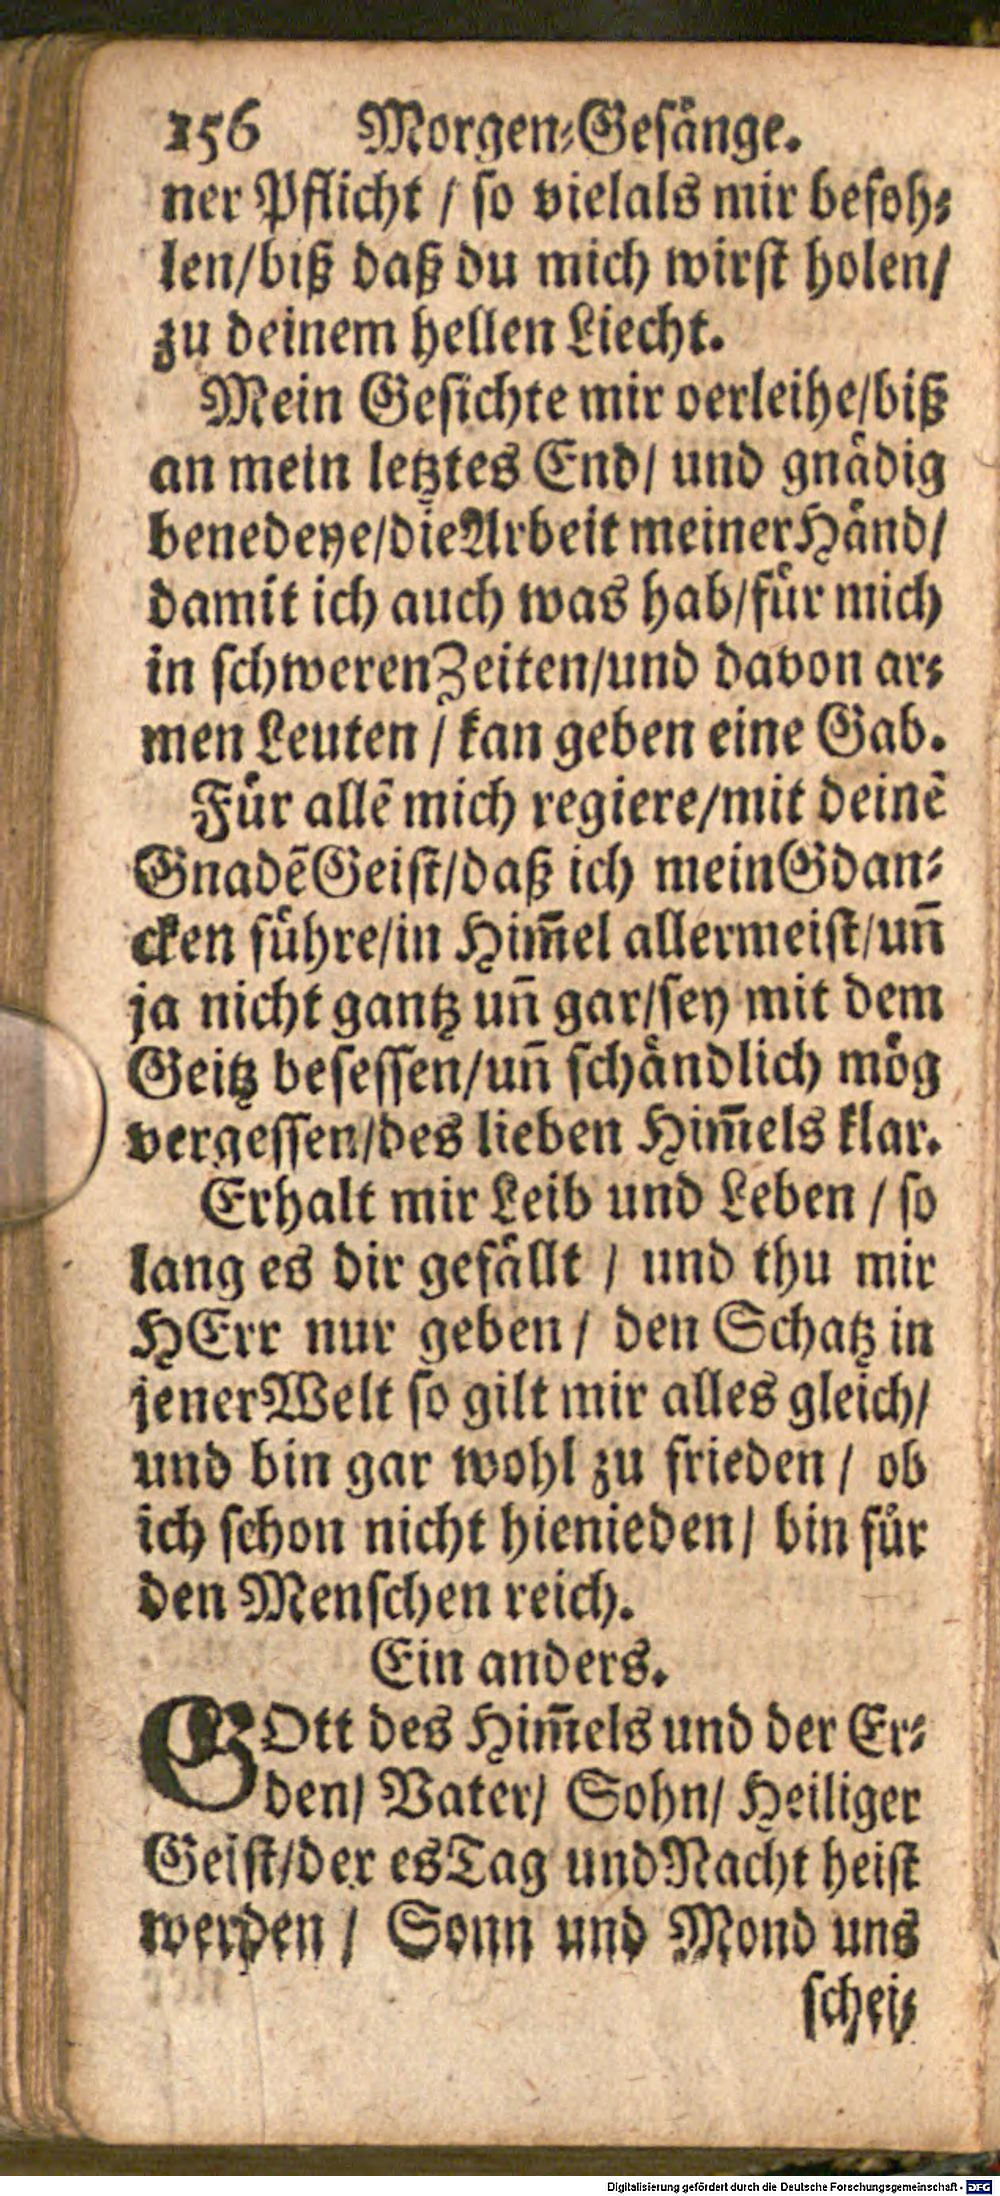 156 Morgen-Gesänge.
ner Pflicht / so vielals mir befoh-
len/biß daß du mich wirst holen/
zu deinem hellen Liecht.
Mein Gesichte mir oerleihe/biß
an mein letztes End/ und gnädig
benedeye/die Arbeit meiner Händ/
damit ich auch was hab/für mich
in schweren Zeiten/und davon ar-
men Leuten / kan geben eine Gab.
Für allē mich regiere/mit deinē
Gnadē Geist/daß ich mein Gdan-
cken führe/in Him̄el allermeist/un̄
ja nicht gantz un̄ gar/sey mit dem
Geitz besessen/un̄ schändlich mög
vergessen/des lieben Him̄els klar.
Erhalt mir Leib und Leben / so
lang es dir gefällt / und thu mir
HErr nur geben / den Schatz in
jener Welt so gilt mir alles gleich/
und bin gar wohl zu frieden / ob
ich schon nicht hienieden/ bin für
den Menschen reich.
Ein anders.
GOtt des Him̄els und der Er-
den/ Vater/ Sohn/ Heiliger
Geist/der es Tag und Nacht heist
werden / Sonn und Mond uns
schei-
Digitalisierung gefördert durch die Deutsche Forschungsgemeinschaft - DFG